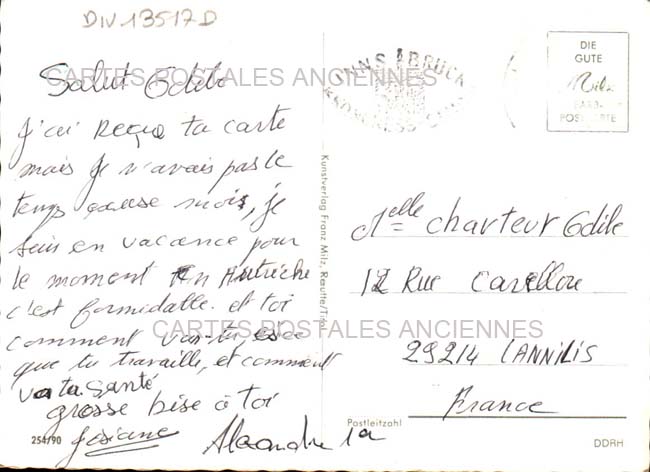 DIV 13517D
CARTES POSTALES ANCIENNES
Salut Odile
J'ai Reçu ta carte
mais je n'avais pas le
temps excuse moi, je
suis en vacance pour
le moment En Autriche
c'est formidable. et toi
comment vas-tu, esce
que tu travaille, et comment
va ta Santé
grosse bise à toi
Josiane Alexandre
254/90
Kunstverlag Franz Milz, Reutte/Tirol
INNSBRUCK
DIE
GUTE
Milz
FARB-
POSTKARTE
Melle Charteur Odile
12 Rue
CARTES POSTALES ANCIENNES
29214 LANNILIS
France
Postleitzahl
DDRH